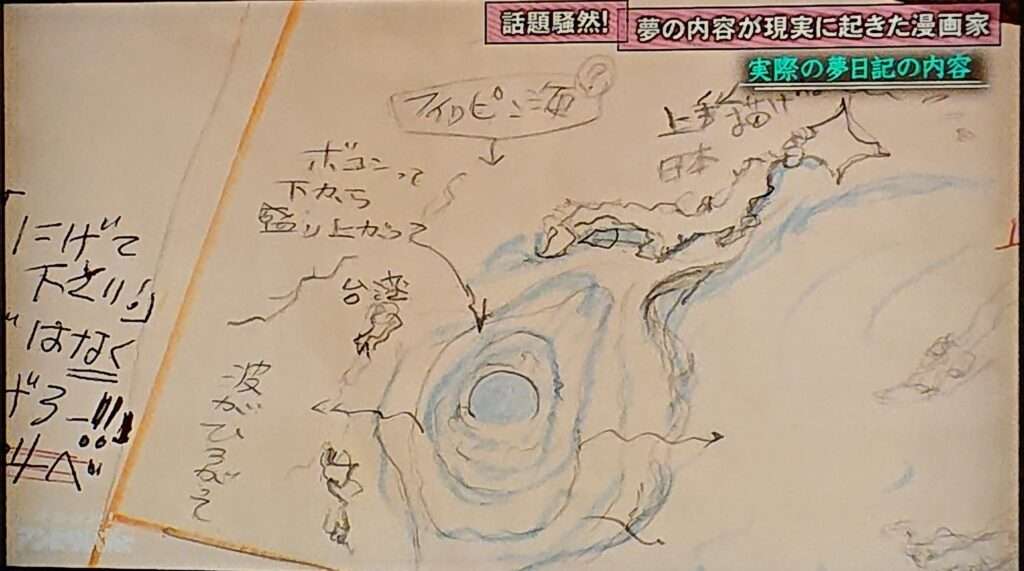 話題騒然!
夢の内容が現実に起きた漫画家
実際の夢日記の内容
フィリピン海
?
ボコンって
下から
盛り上がって
日本
台湾
波がひろがって
にげて
下さい!」
はなく
げろー!!!